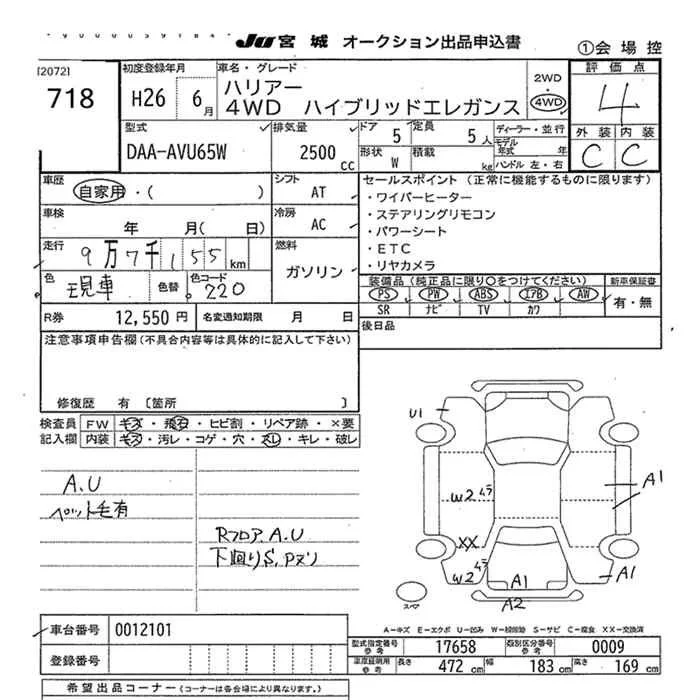 JU 宮城 オークション出品申込書
①会場控
[2072]
718
初度登録年月
H26 6月
車名・グレード
ハリアー
4WD ハイブリッドエレガンス
2WD
・
4WD
評価点
4
外装 内装
C C
型式
DAA-AVU65W
排気量
2500 cc
ドア 5
定員 5人
形状 W
積載 kg
ディーラー・並行
モデル年式 年
ハンドル 左・右
車歴
自家用・( )
シフト
AT
車検
年 月( 日)
冷房
AC
走行
9万7千155km
燃料
ガソリン
色
現車
色替
色コード
220
R券 12,550円
名変通知期限 月 日
セールスポイント (正常に機能するものに限ります)
・ワイパーヒーター
・ステアリングリモコン
・パワーシート
・ETC
・リヤカメラ
装備品(純正品に限り○をつけてください)
PS PW ABS エアB AW
SR ナビ TV カワ
新車保証書
有・無
後日品
注意事項申告欄(不具合内容等は具体的に記入して下さい)
修復歴 有 〔箇所 〕
検査員記入欄
FW キズ・飛石・ヒビ割・リペア跡・×要
内装 キズ・汚レ・コゲ・穴・スレ・キレ・破レ
A.U
ペット毛有
Rフロア A.U
下廻りS,Pズリ
U1
W2
A1
XX
W2
A1
A1
A2
スペア
A-キズ E-エクボ U-凹み W-補修跡 S-サビ C-腐食 XX-交換済
車台番号 0012101
登録番号
型式指定番号 参考 17658
類別区分番号 参考 0009
車庫証明用 参考 長さ 472cm 幅 183cm 高さ 169cm
希望出品コーナー(コーナーは各会場により異なります。)